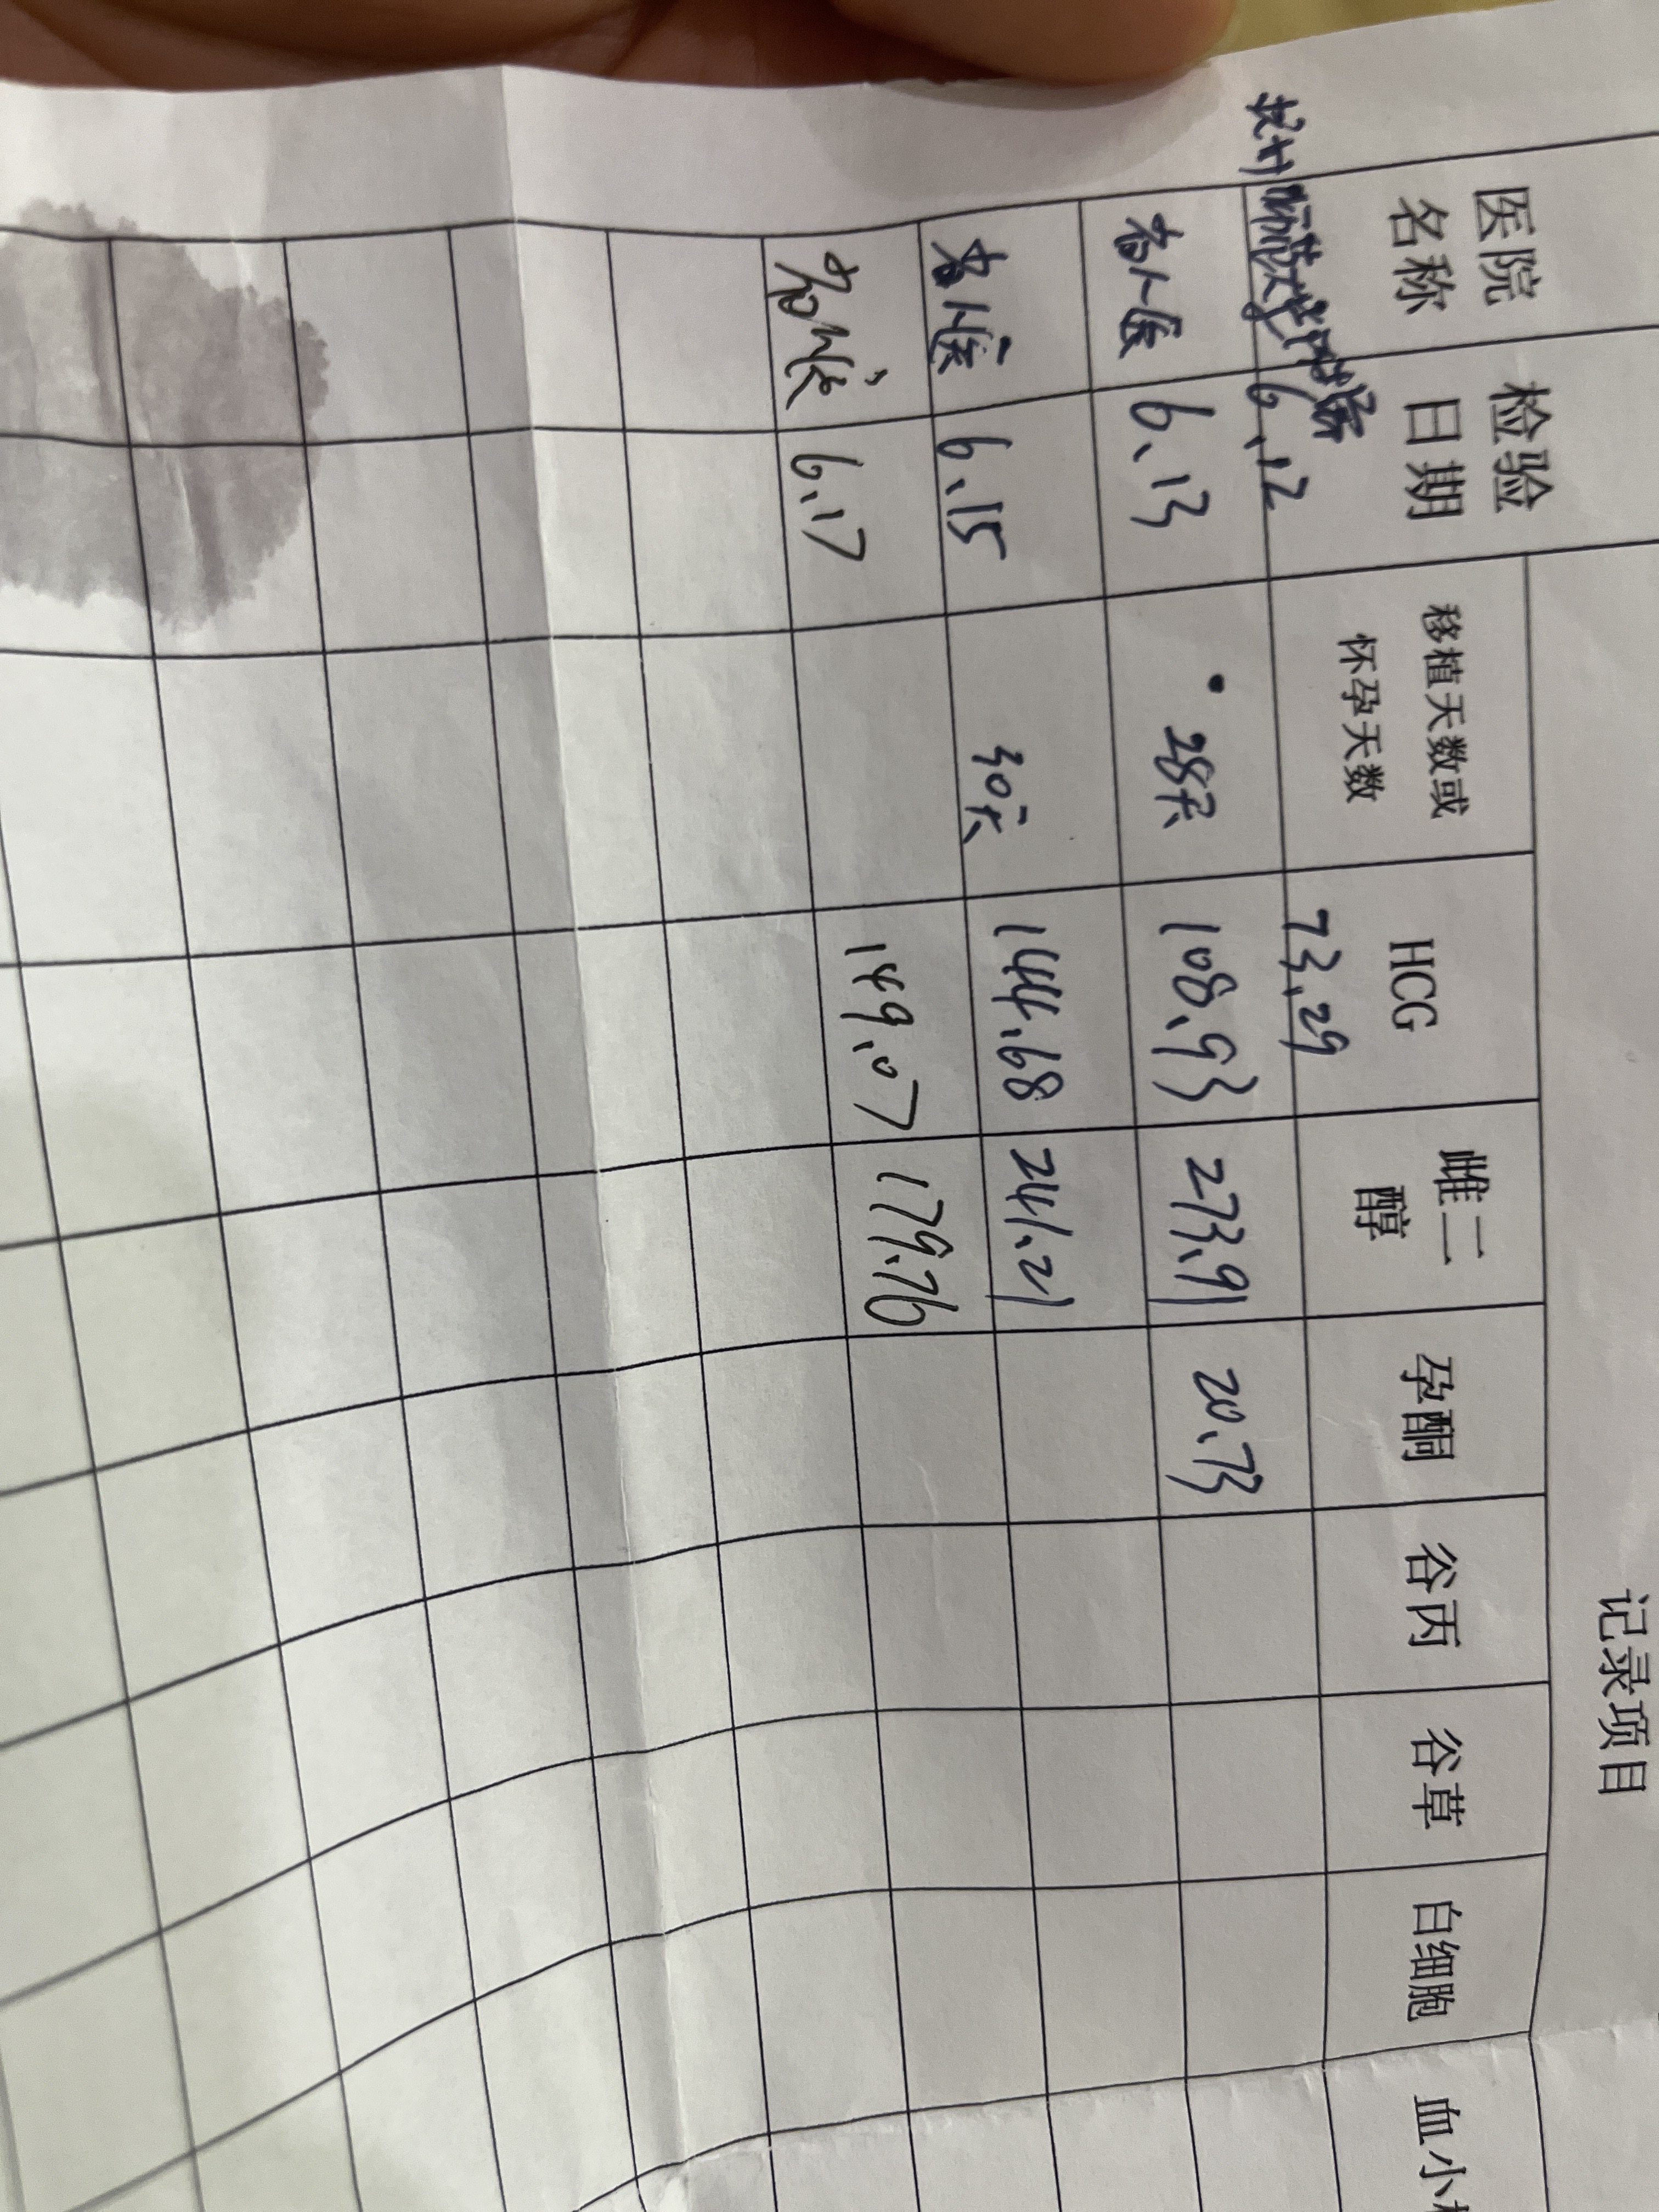 记录项目
医院名称 检验日期 移植天数或怀孕天数 HCG 雌二醇 孕酮 谷丙 谷草 白细胞 血小
6.12 73.29
6.13 28天 108.93 273.91 20.73
6.15 30天 144.68 241.21
6.17 149.07 179.76